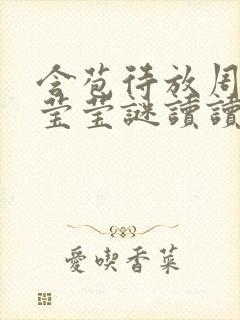 含苞待放周
莹莹謎讀讀
愛喫香菜